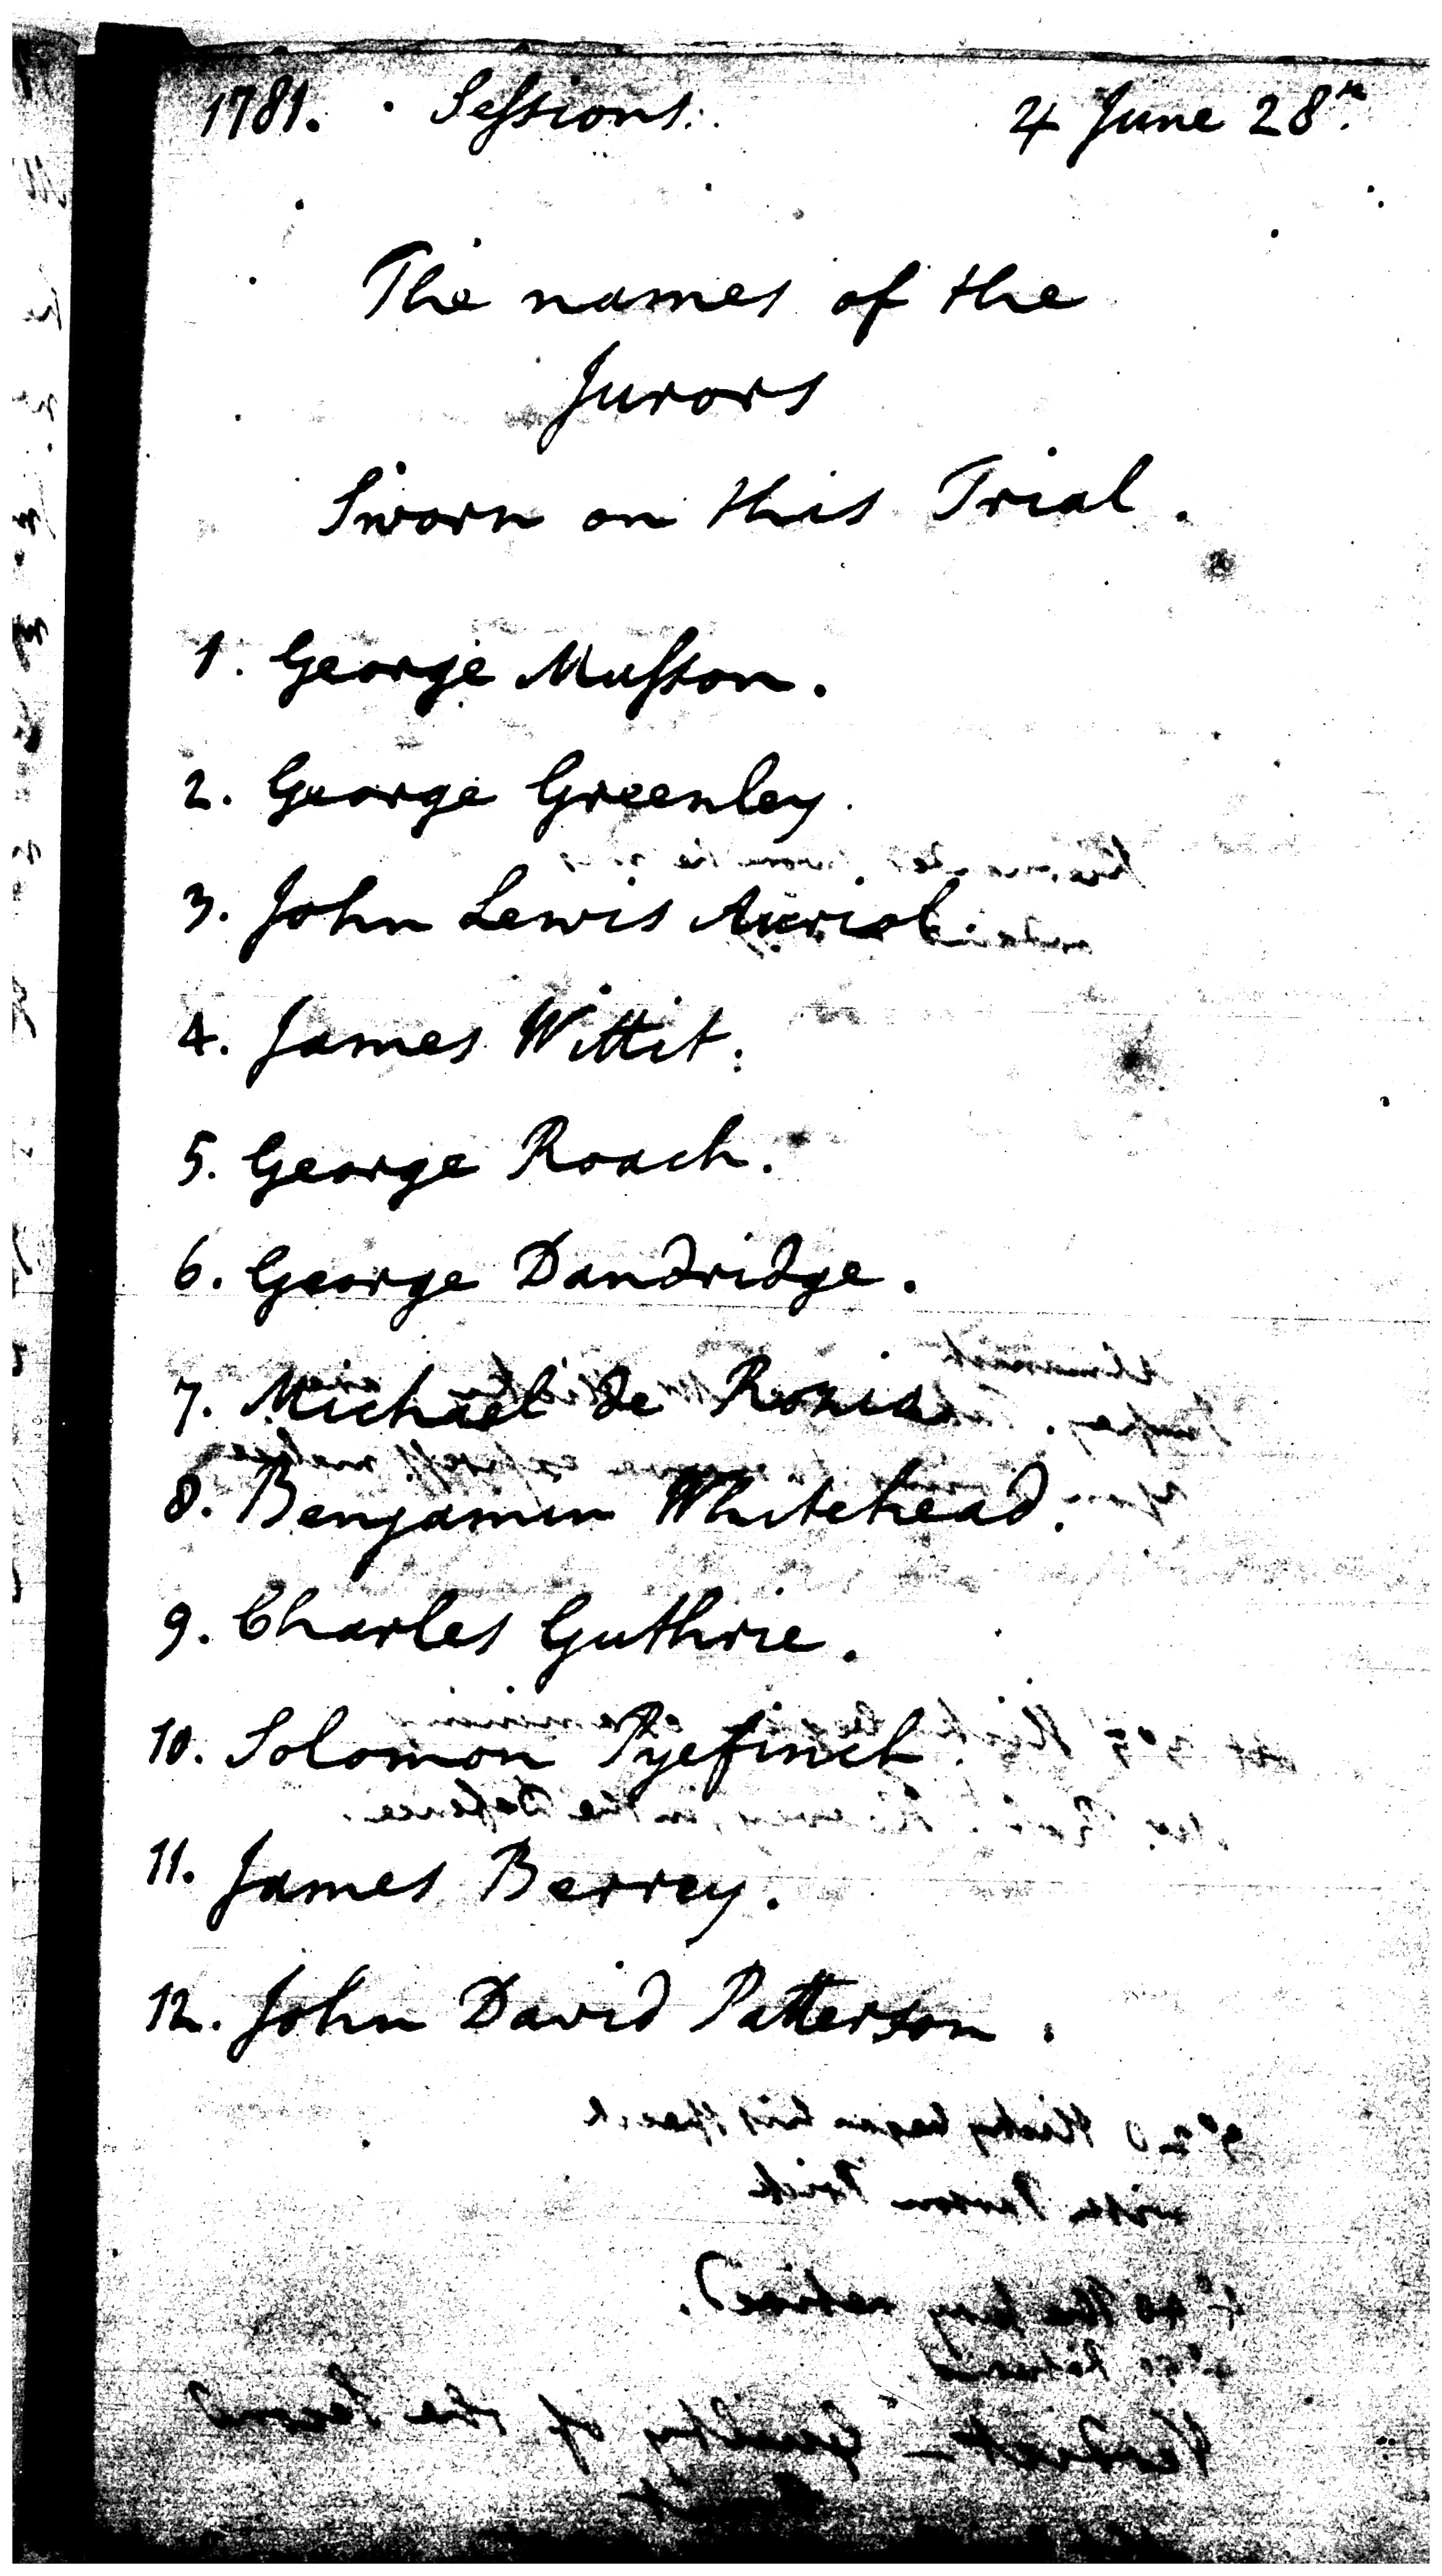 1781. Sessions. 4 June 28th.
The names of the
Jurors
Sworn on this Trial.
1. George Musson.
2. George Greenley.
3. John Lewis Auriol.
4. James Wittit.
5. George Roach.
6. George Dandridge.
7. Michael de Rozia.
8. Benjamin Whitehead.
9. Charles Guthrie.
10. Solomon Pyefinch.
11. James Berrey.
12. John David Patterson.